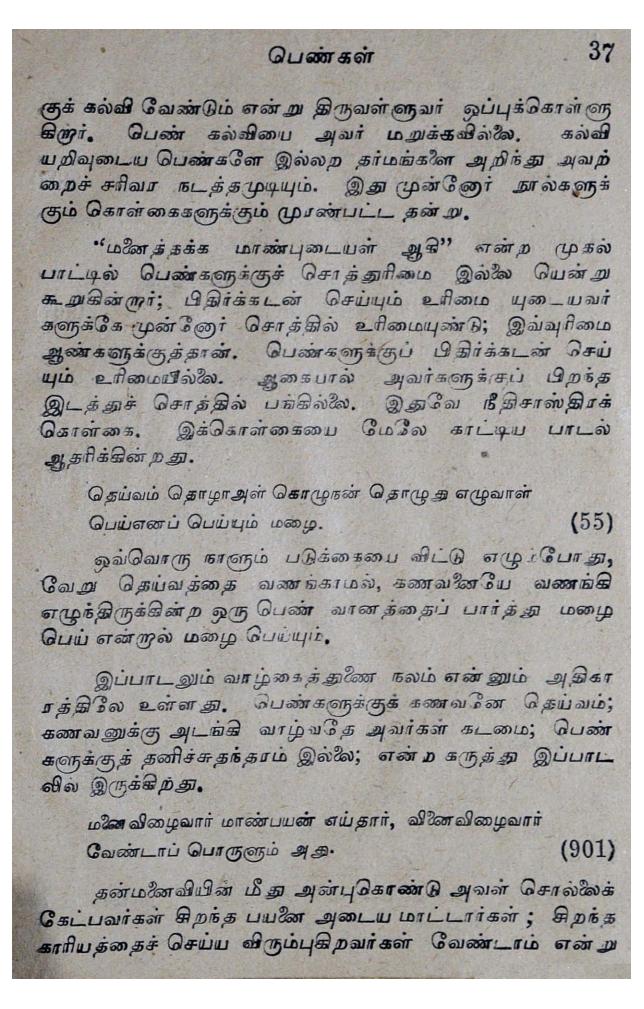 பெண்கள் 37
குக் கல்வி வேண்டும் என்று திருவள்ளுவர் ஒப்புக்கொள்ளு
கிறார். பெண் கல்வியை அவர் மறுக்கவில்லை. கல்வி
யறிவுடைய பெண்களே இல்லற தர்மங்களை அறிந்து அவற்
றைச் சரிவர நடத்தமுடியும். இது முன்னோர் நூல்களுக்
கும் கொள்கைகளுக்கும் முரண்பட்ட தன்று.
“மனைத்தக்க மாண்புடையள் ஆகி” என்ற முதல்
பாட்டில் பெண்களுக்குச் சொத்துரிமை இல்லை யென்று
கூறுகின்றார்; பிதிர்க்கடன் செய்யும் உரிமை யுடையவர்
களுக்கே முன்னோர் சொத்தில் உரிமையுண்டு; இவ்வுரிமை
ஆண்களுக்குத்தான். பெண்களுக்குப் பிதிர்க்கடன் செய்
யும் உரிமையில்லை. ஆகையால் அவர்களுக்குப் பிறந்த
இடத்துச் சொத்தில் பங்கில்லை. இதுவே நீதிசாஸ்திரக்
கொள்கை. இக்கொள்கையை மேலே காட்டிய பாடல்
ஆதரிக்கின்றது.
தெய்வம் தொழாஅள் கொழுநன் தொழுது எழுவாள்
பெய்எனப் பெய்யும் மழை. (55)
ஒவ்வொரு நாளும் படுக்கையை விட்டு எழும்போது,
வேறு தெய்வத்தை வணங்காமல், கணவனையே வணங்கி
எழுந்திருக்கின்ற ஒரு பெண் வானத்தைப் பார்த்து மழை
பெய் என்றால் மழை பெய்யும்.
இப்பாடலும் வாழ்கைத்துணை நலம் என்னும் அதிகா
ரத்திலே உள்ளது. பெண்களுக்குக் கணவனே தெய்வம்;
கணவனுக்கு அடங்கி வாழ்வதே அவர்கள் கடமை; பெண்
களுக்குத் தனிச்சுதந்தரம் இல்லை; என்ற கருத்து இப்பாட
லில் இருக்கிறது.
மனைவிழைவார் மாண்பயன் எய்தார், வினைவிழைவார்
வேண்டாப் பொருளும் அது. (901)
தன்மனைவியின் மீது அன்புகொண்டு அவள் சொல்லைக்
கேட்பவர்கள் சிறந்த பயனை அடைய மாட்டார்கள்; சிறந்த
காரியத்தைச் செய்ய விரும்புகிறவர்கள் வேண்டாம் என்று